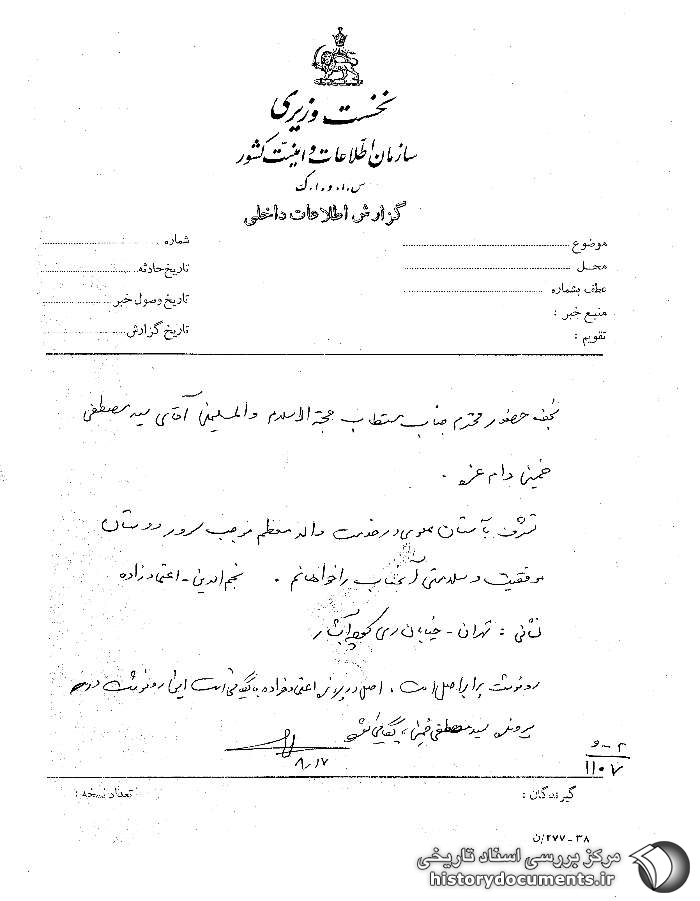 نخست وزیری
سازمان اطلاعات و امنیت کشور
س.ا.و.ا.ک
گزارش اطلاعات داخلی
موضوع
شماره
محـل
تاریخ حادثه
عطف بشماره
تاریخ وصول خبر
منبع خبر :
تاریخ گزارش
تقویم :
نجف حضور محترم جناب مستطاب حجة الاسلام والمسلمین آقای سید مصطفی
خمینی دام عزه .
تشرف بآستان علوی و خدمت والد معظم موجب سرور دوستان
موفقیت و سلامتی آنجناب را خواهانم . نجم الدین - اعتمادزاده
نشانی : تهران - خیابان ری کوچه آبشار
رونوشت برابر اصل است . اصل در پرونده اعتمادزاده بایگانی است این رونوشت در
پرونده سید مصطفی خمینی بایگانی شود
۸/۱۷
۲ - و
۱۱۰۷
گیرندگان :
تعداد نسخه :
۳۸ - ۲۷۷/ن
مرکز بررسی اسناد تاریخی
historydocuments.ir